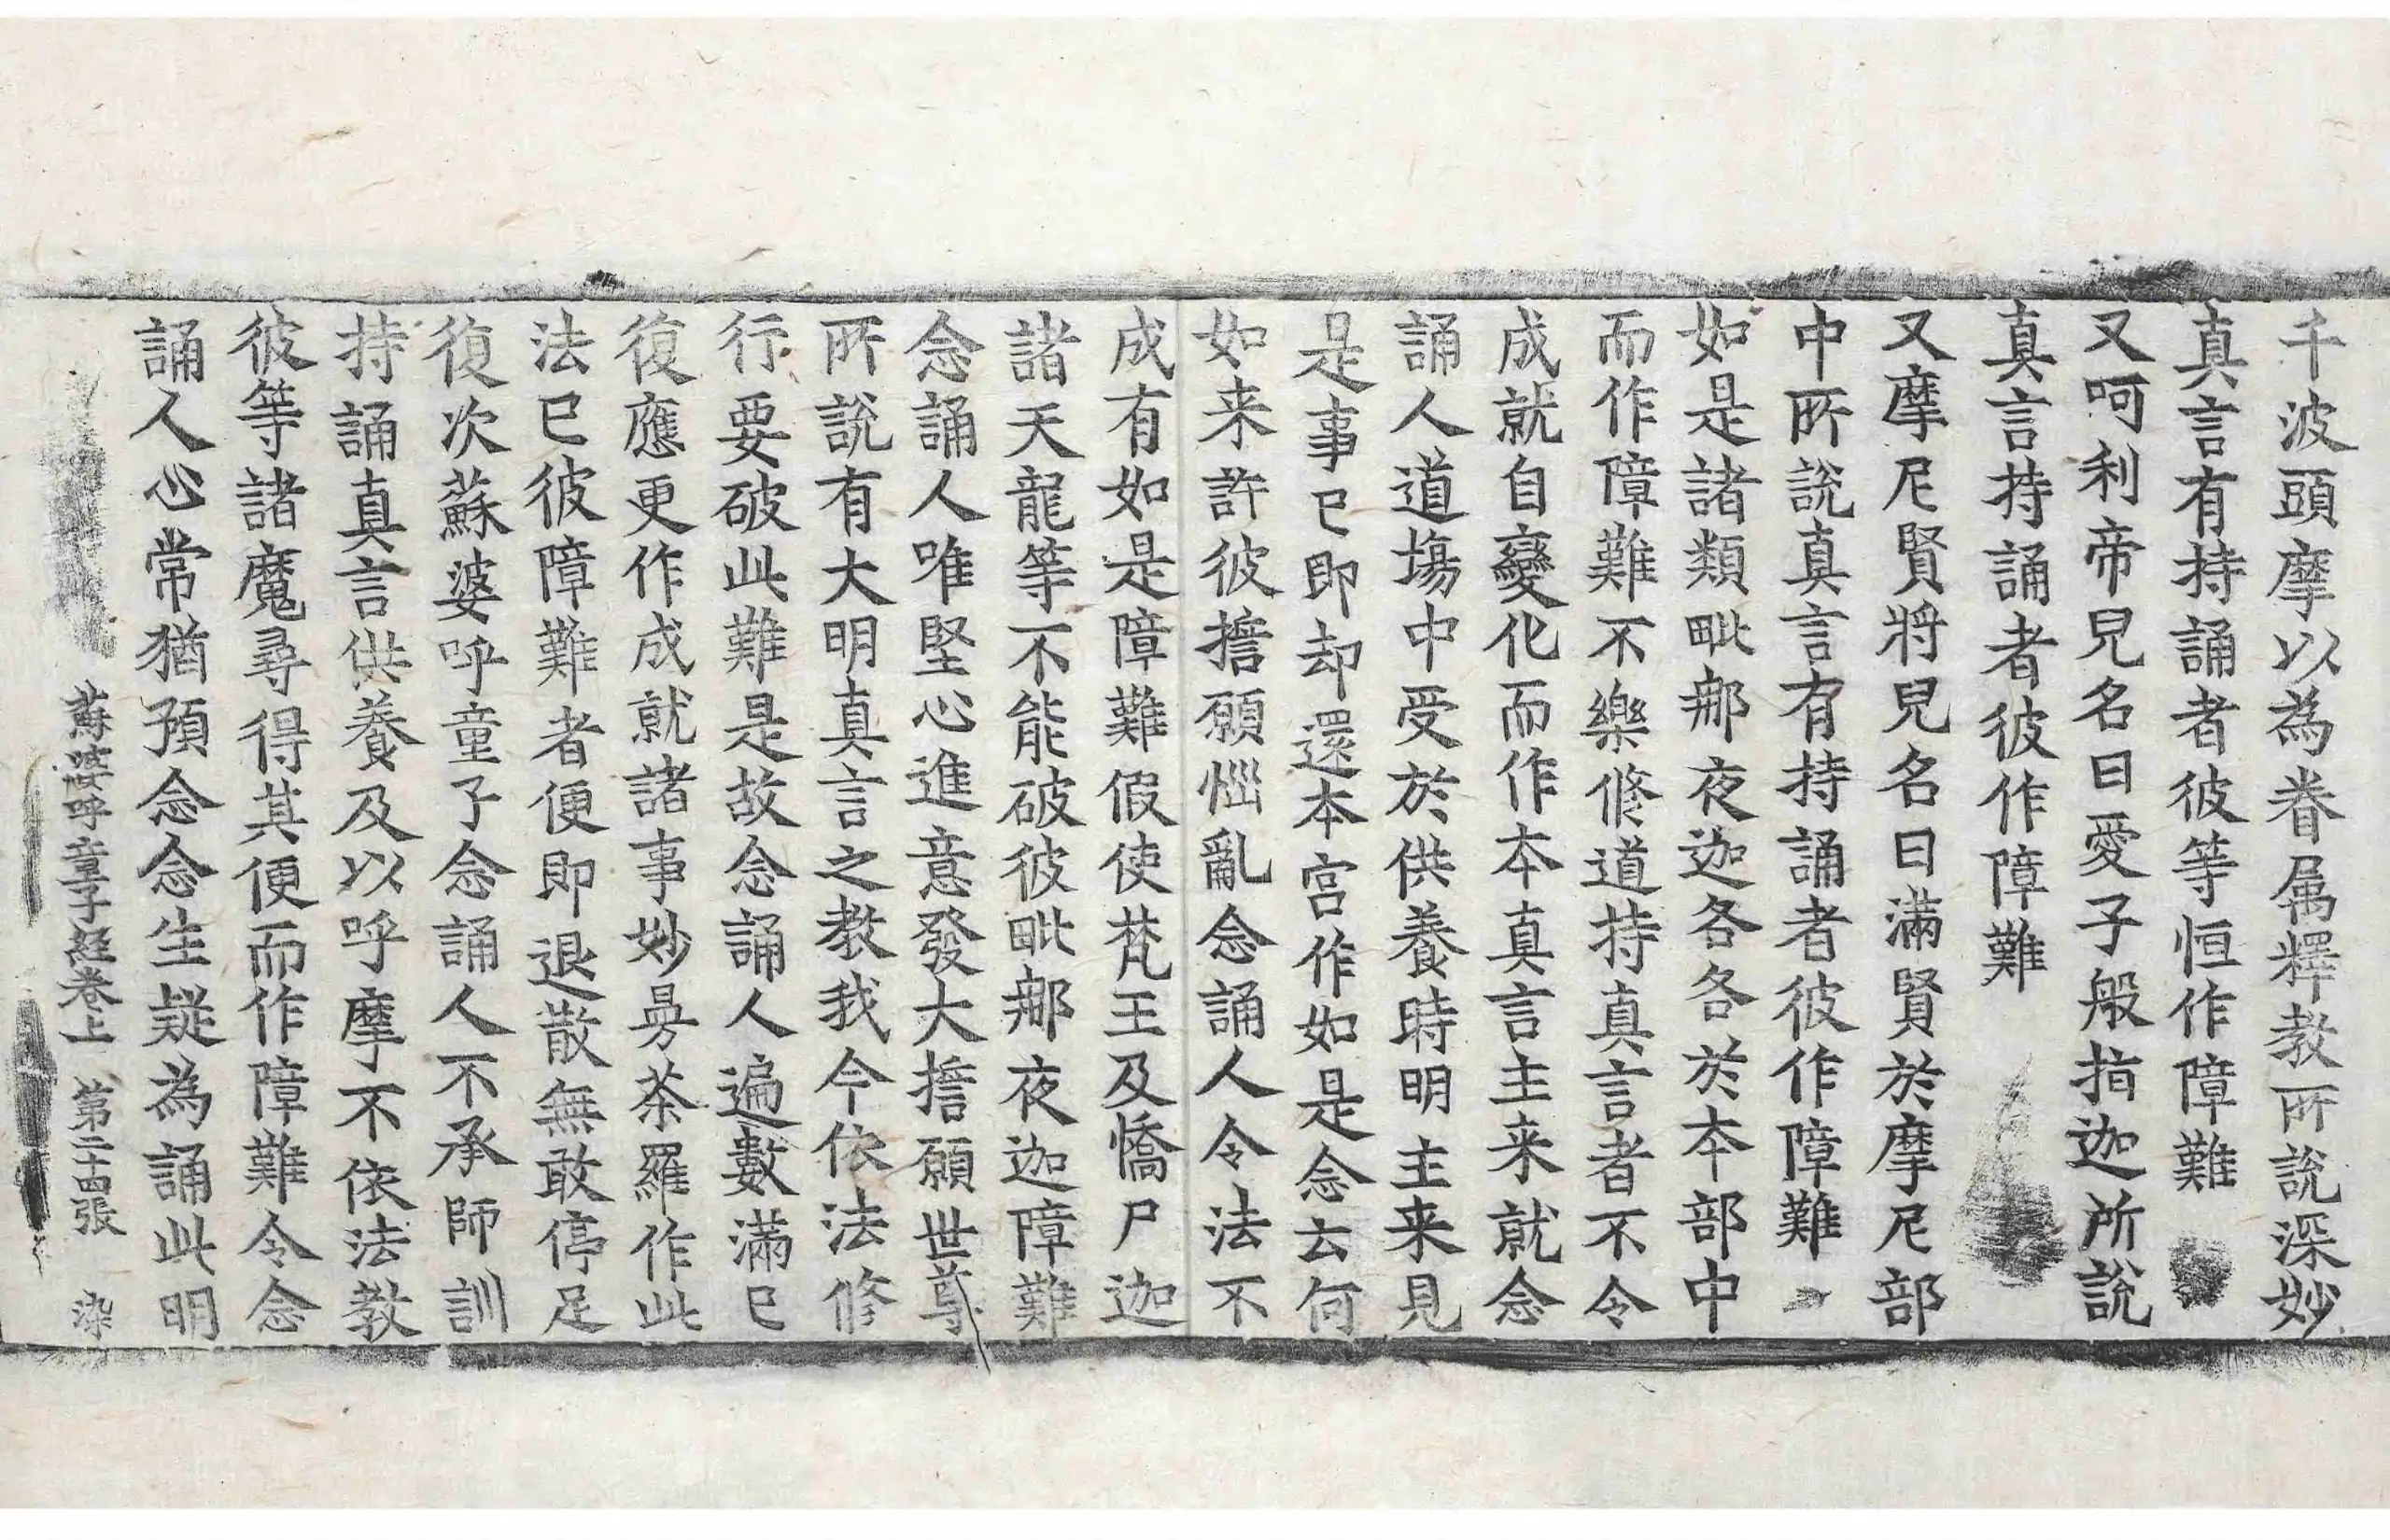 千波頭摩以為眷属釋教所說深妙
真言有持誦者彼等恒作障難
又呵利帝兒名曰愛子般指迦所說
真言持誦者彼作障難
又摩尼賢將兒名曰滿賢於摩尼部
中所說真言有持誦者彼作障難
如是諸類毗那夜迦各各於本部中
而作障難不樂修道持真言者不令
成就自變化而作本真言主来就念
誦人道場中受於供養時明主来見
是事已即却還本宮作如是念云何
如来許彼擔願惱亂念誦人令法不
成有如是障難假使梵王及憍尸迦
諸天龍等不能破彼毗那夜迦障難
念誦人唯堅心進意發大擔願世尊
所說有大明真言之教我今依法修
行要破此難是故念誦人遍數滿已
復應更作成就諸事妙曼荼羅作此
法已彼障難者便即退散無敢停足
復次蘇婆呼童子念誦人不承師訓
持誦真言供養及以呼摩不依法教
彼等諸魔尋得其便而作障難令念
誦人心常猶預念念生疑為誦此明
蘇婆呼童子經卷上 第二十四張 染